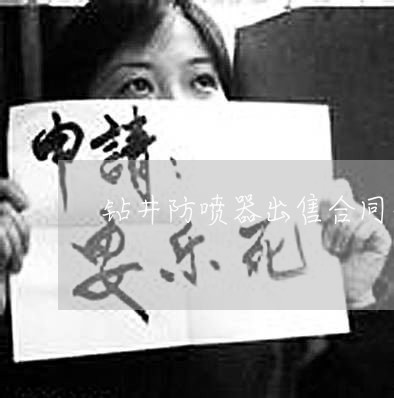 申請：
钻井防喷器出售合同
要乐死